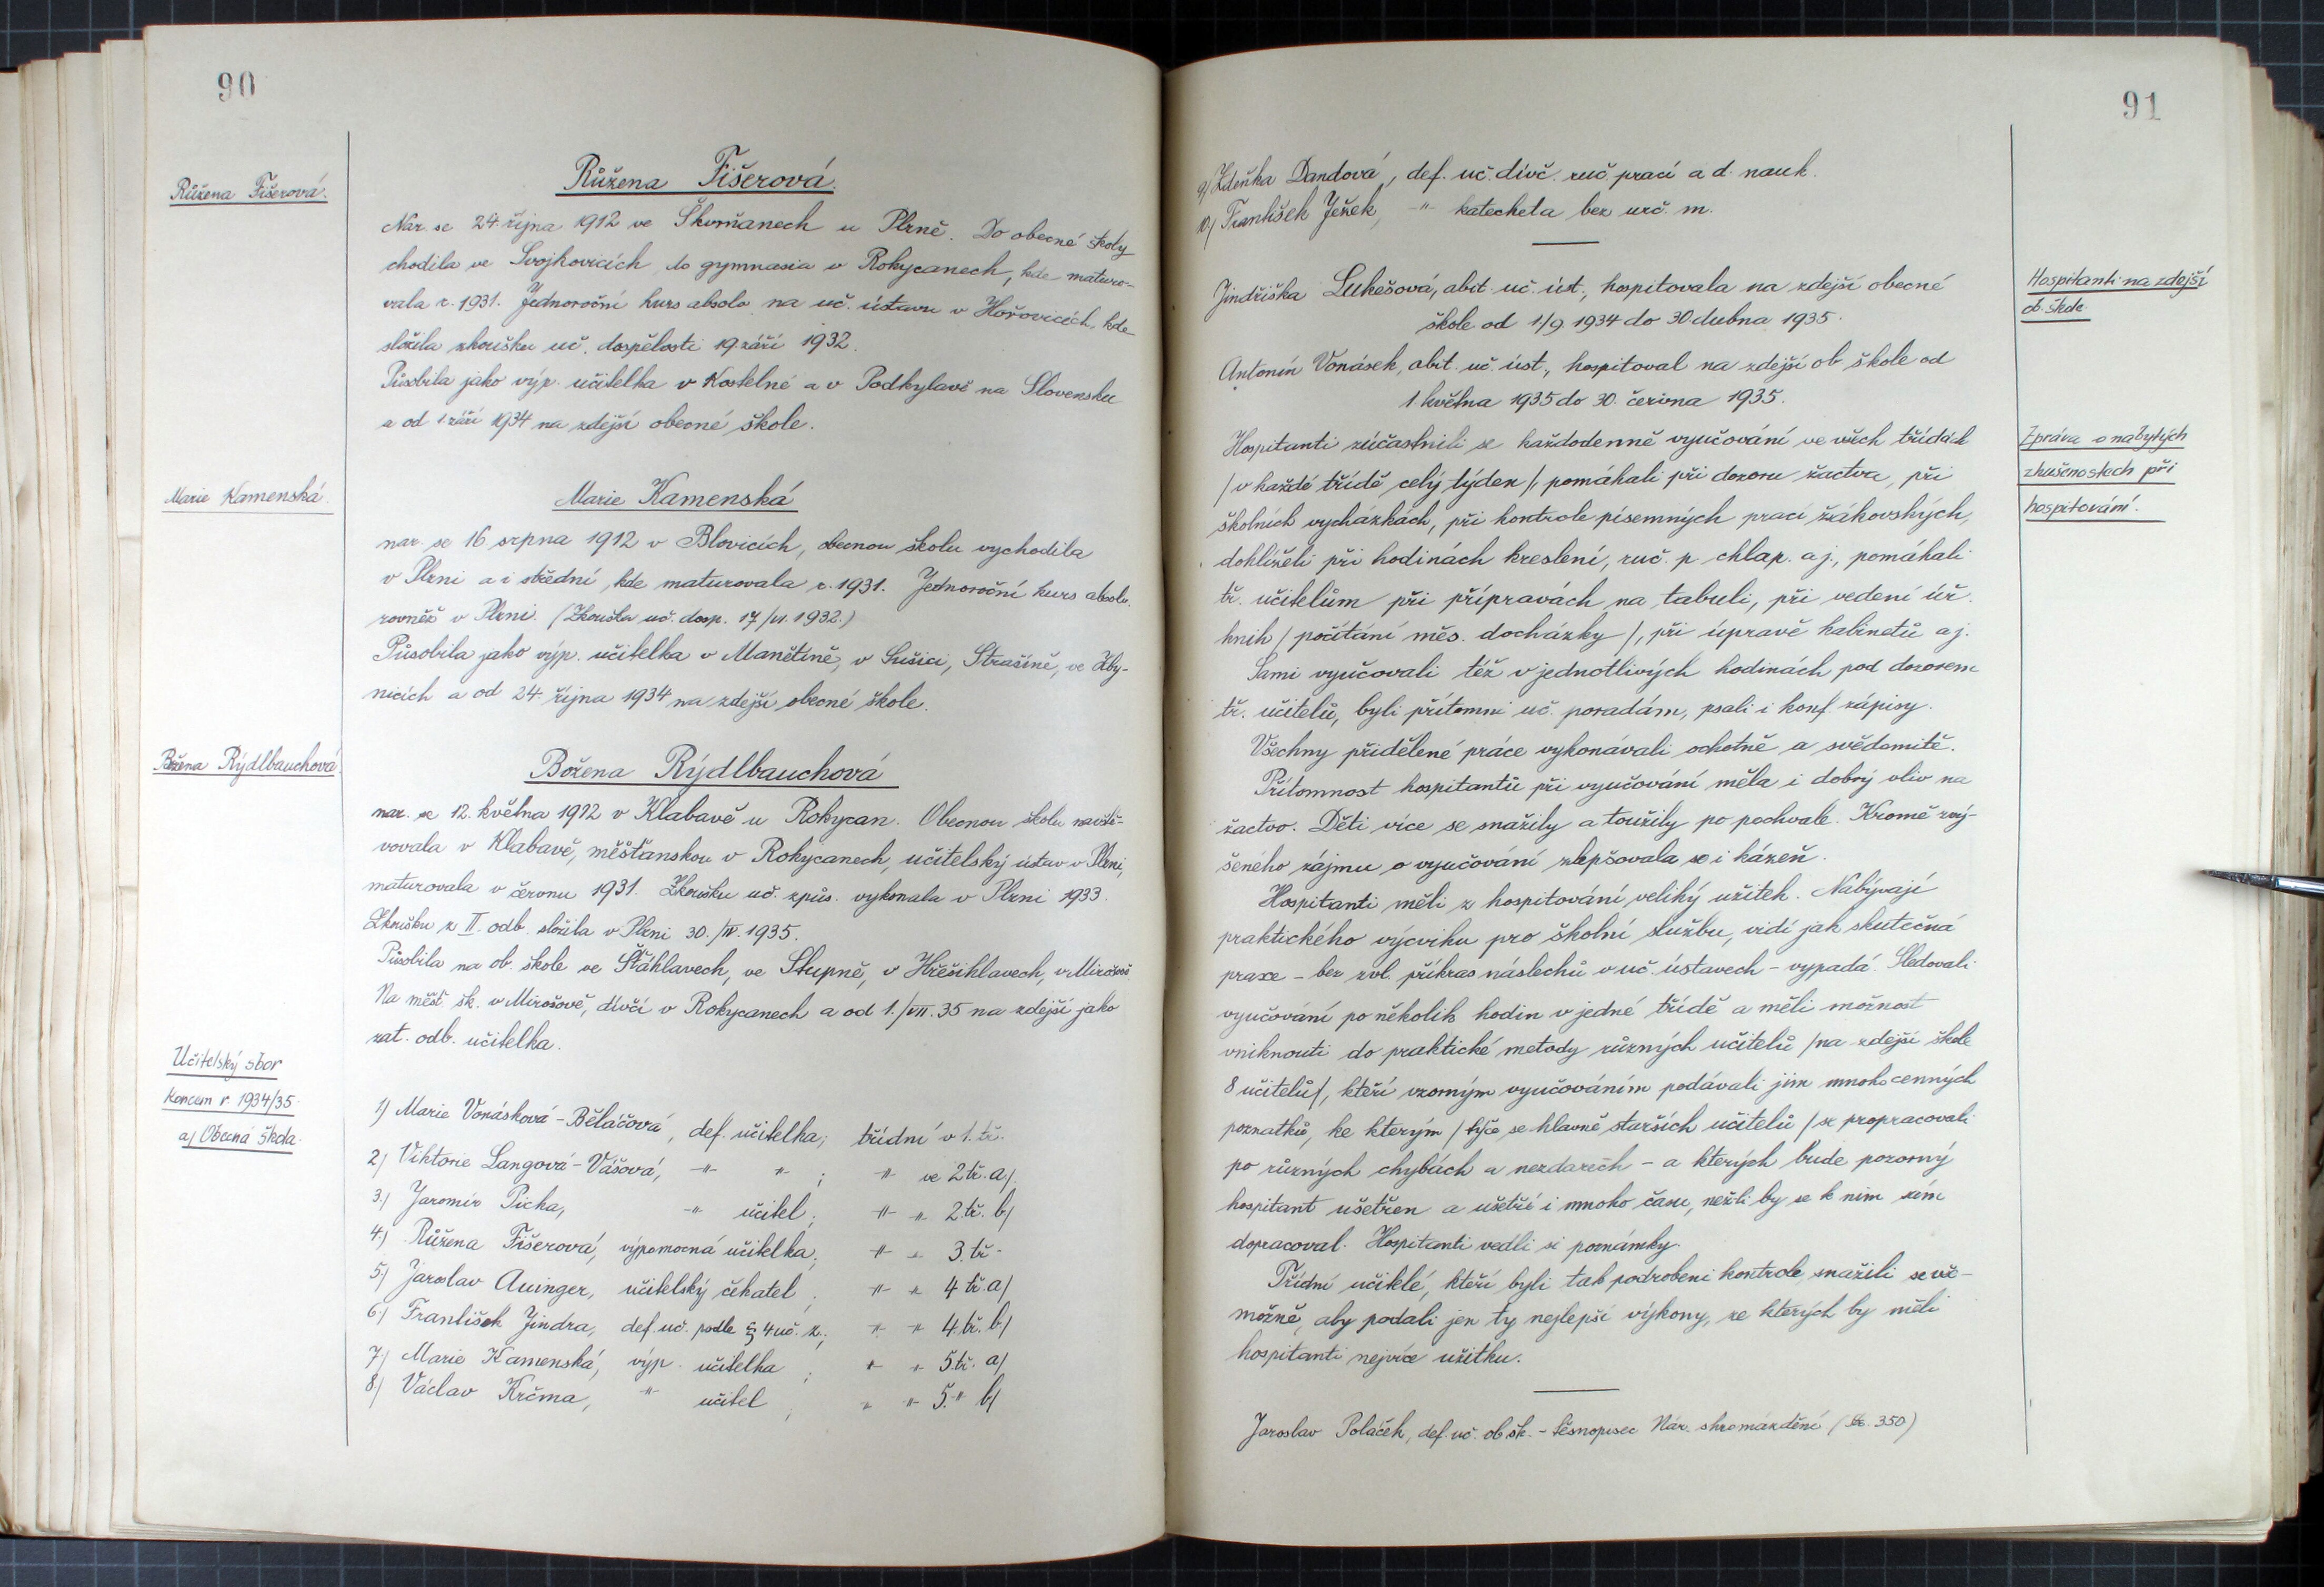 90
Růžena Fišerová.
Růžena Fišerová.
Nar. se 24. října 1912 ve Skvrňanech u Plzně. Do obecné školy
chodila ve Svojkovicích, do gymnasia v Rokycanech, kde maturo-
vala r. 1931. Jednoroční kurs absolv. na uč. ústavu v Hořovicích, kde
složila zkoušku uč. dospělosti 19. září 1932.
Působila jako výp. učitelka v Kostelné a v Podkylavě na Slovensku
a od 1 září 1934 na zdejší obecné škole.
Marie Kamenská.
Marie Kamenská
nar. se 16. srpna 1912 v Blovicích, obecnou školu vychodila
v Plzni a i střední, kde maturovala r. 1931. Jednoroční kurs absolv.
rovněž v Plzni. (Zkouška uč. dosp. 17/VI. 1932.)
Působila jako výp. učitelka v Manětíně, v Sušici, Strašíně, ve Zby-
nicích a od 24. října 1934 na zdejší obecné škole.
Božena Rýdlbauchová.
Božena Rýdlbauchová
nar. se 12. května 1912 v Klabavě u Rokycan. Obecnou školu navště-
vovala v Klabavě, měšťanskou v Rokycanech, učitelský ústav v Plzni,
maturovala v červnu 1931. Zkoušku uč. způs. vykonala v Plzni 1933.
Zkoušku z II. odb. složila v Plzni 30./IV. 1935.
Působila na ob. škole ve Šťáhlavech, ve Stupně, v Hřešihlavech, v Mirošově
Na měšť. šk. v Mirošově, dívčí v Rokycanech a od 1./VII. 35 na zdejší jako
zat. odb. učitelka.
Učitelský sbor
koncem r. 1934/35.
a/ Obecná škola.
1) Marie Vonásková-Běláčová, def. učitelka; třídní v 1. tř.
2) Viktorie Langová-Vášová, -"- "- ; -"- ve 2 tř. a/.
3.) Jaromír Picka, -"- učitel; -"- "- 2. tř. b/
4.) Růžena Fišerová, výpomocná učitelka; -"- "- 3. tř.
5.) Jaroslav Auinger, učitelský čekatel ; -"- "- 4 tř. a/
6.) František Jindra, def. uč. podle § 4 uč. z.; "- "- 4. tř. b/
7.) Marie Kamenská, výp. učitelka ; "- "- 5. tř. a/
8.) Václav Krčma, -"- učitel ; "- "- 5. " b/
91
9/ Zdeňka Dandová, def. uč. dívč. ruč. prací a d. nauk.
10/ František Ježek, -"- katecheta bez urč. m.
Jindřiška Lukešová, abit. uč. úst., hospitovala na zdejší obecné
škole od 1/9. 1934 do 30 dubna 1935.
Hospitanti na zdejší
ob. škole
Antonín Vonásek, abit. uč. úst., hospitoval na zdejší ob škole od
1 května 1935 do 30. června 1935.
Zpráva o nabytých
zkušenostech při
hospitování.
Hospitanti zúčastnili se každodenně vyučování ve všech třídách
/v každé třídě celý týden/, pomáhali při dozoru žactva, při
školních vycházkách, při kontrole písemných prací žákovských,
dohlíželi při hodinách kreslení, ruč. p. chlap. a j., pomáhali
tř. učitelům při přípravách na tabuli, při vedení úř.
knih /počítání měs. docházky/, při úpravě kabinetů a j.
Sami vyučovali též v jednotlivých hodinách pod dozorem
tř. učitelů, byli přítomni uč. poradám, psali i konf. zápisy.
Všechny přidělené práce vykonávali ochotně a svědomitě.
Přítomnost hospitantů při vyučování měla i dobrý vliv na
žactvo. Děti více se snažily a toužily po pochvale. Kromě zvý-
šeného zájmu o vyučování zlepšovala se i kázeň.
Hospitanti měli z hospitování veliký užitek. Nabývají
praktického výcviku pro školní službu, vidí jak skutečná
praxe - bez zvl. příkras náslechů v uč. ústavech - vypadá. Sledovali
vyučování po několik hodin v jedné třídě a měli možnost
vniknouti do praktické metody různých učitelů /na zdejší škole
8 učitelů/, kteří vzorným vyučováním podávali jim mnoho cenných
poznatků, ke kterým /týče se hlavně starších učitelů/ se propracovali
po různých chybách a nezdarech - a kterých bude pozorný
hospitant ušetřen a ušetří i mnoho času, nežli by se k nim sám
dopracoval. Hospitanti vedli si poznámky.
Třídní učiklé, kteří byli tak podrobeni kontrole, snažili se vše-
možně, aby podali jen ty nejlepší výkony, ze kterých by měli
hospitanti nejvíce užitku.
Jaroslav Poláček, def. uč. ob šk. - těsnopisec Nár. shromáždění ( 350)